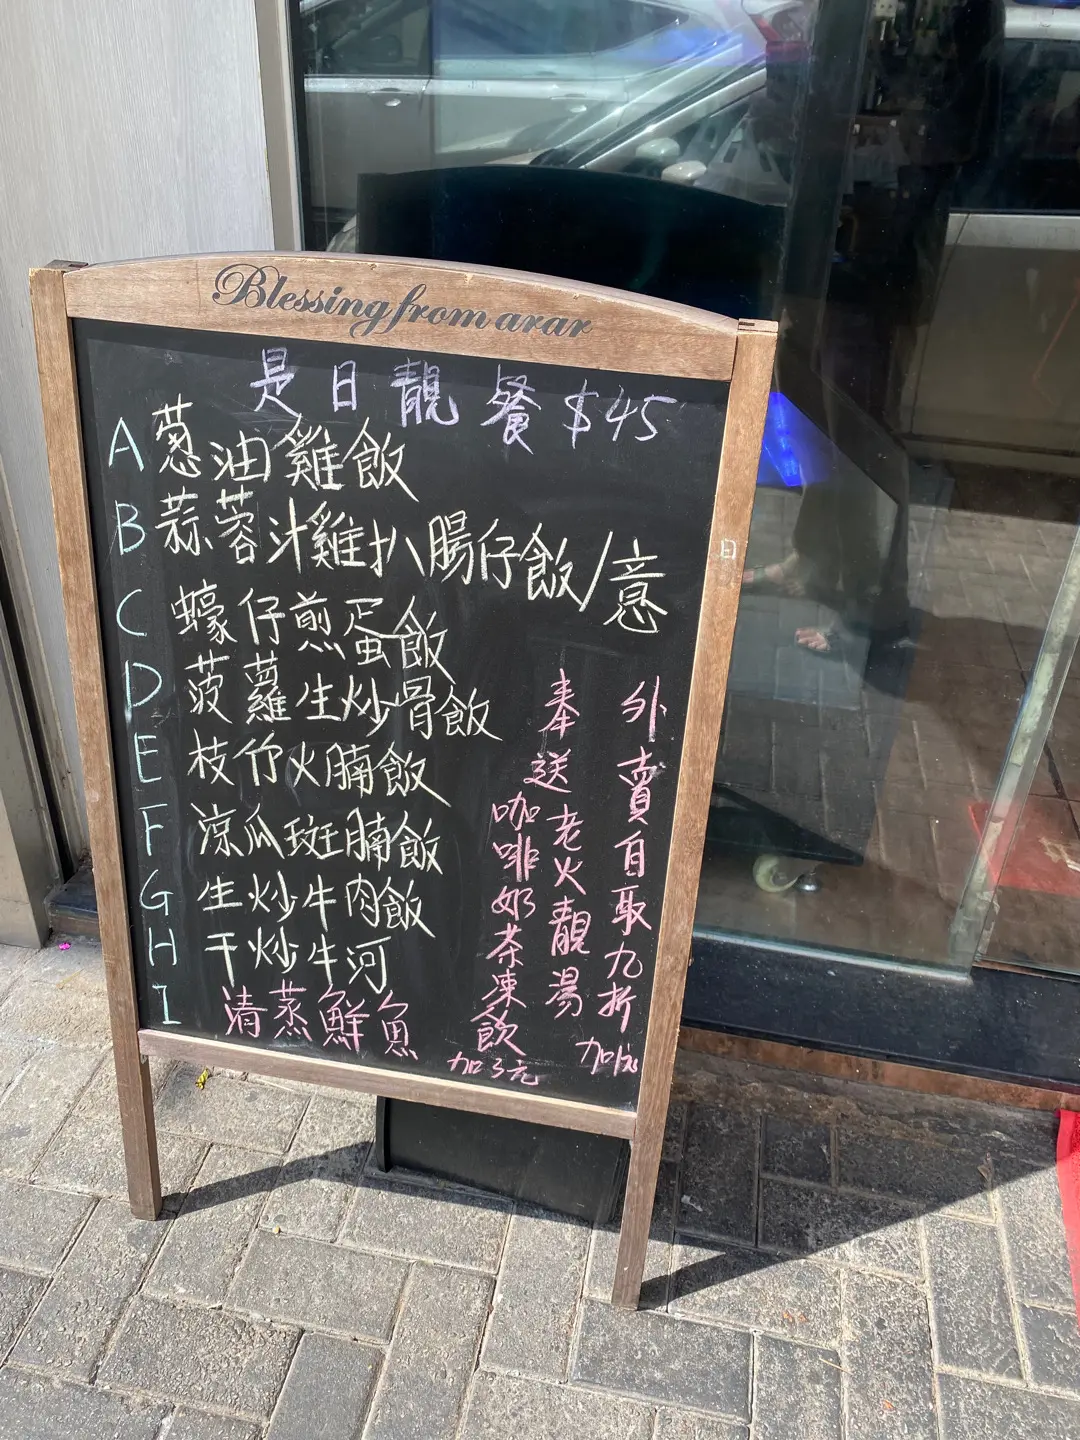 Blessing from arar
是日靚餐 $45
A 蔥油雞飯
B 蒜蓉汁雞扒腸仔飯/意
C 蠔仔煎蛋飯
D 菠蘿生炒骨飯
E 枝竹火腩飯
F 涼瓜斑腩飯
G 生炒牛肉飯
H 干炒牛河
I 清蒸鮮魚
外賣自取九折
奉送老火靚湯
咖啡奶茶凍飲
加3元
日